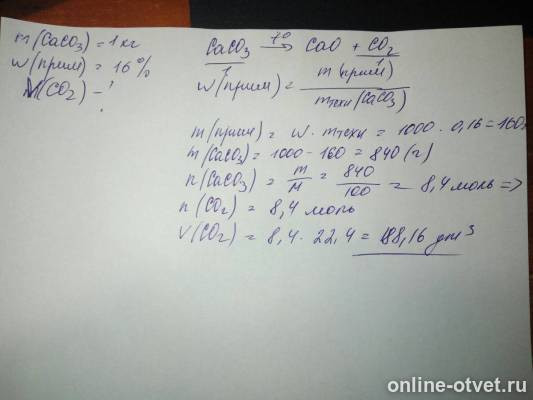 m(CaCO3) = 1 кг
w(прим) = 16%
M(CO2) - ?
CaCO3 t° → CaO + CO2
w(прим) = m(прим) / mтехн(CaCO3)
m(прим) = w · mтехн = 1000 · 0,16 = 160г
m(CaCO3) = 1000 - 160 = 840 (г)
n(CaCO3) = m/M = 840/100 = 8,4 моль =>
n(CO2) = 8,4 моль
V(CO2) = 8,4 · 22,4 = 188,16 дм3
online-otvet.ru